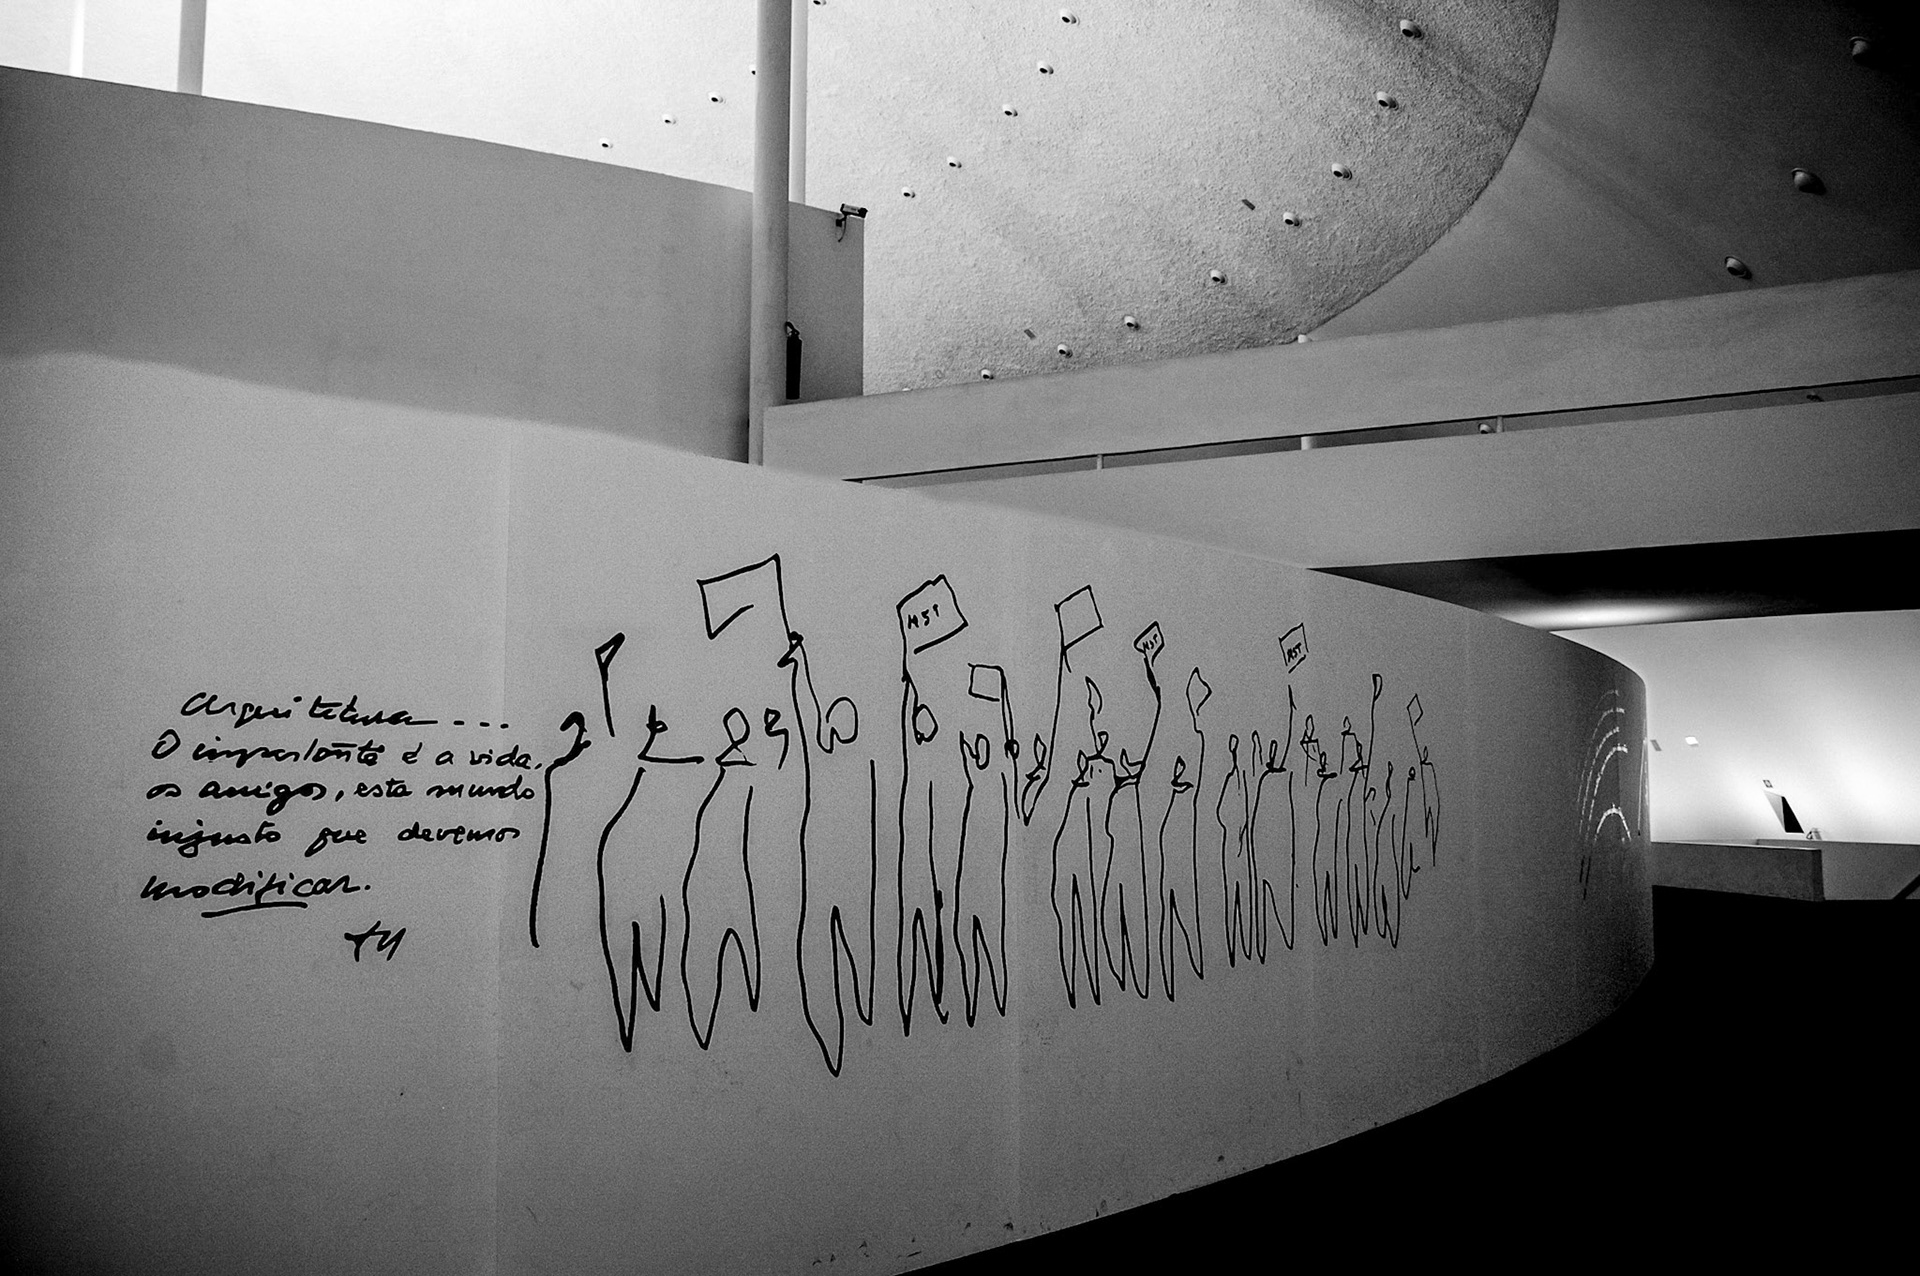 arquitetura...
O importante é a vida,
os amigos, este mundo
injusto que devemos
modificar.
MST
MST
MST